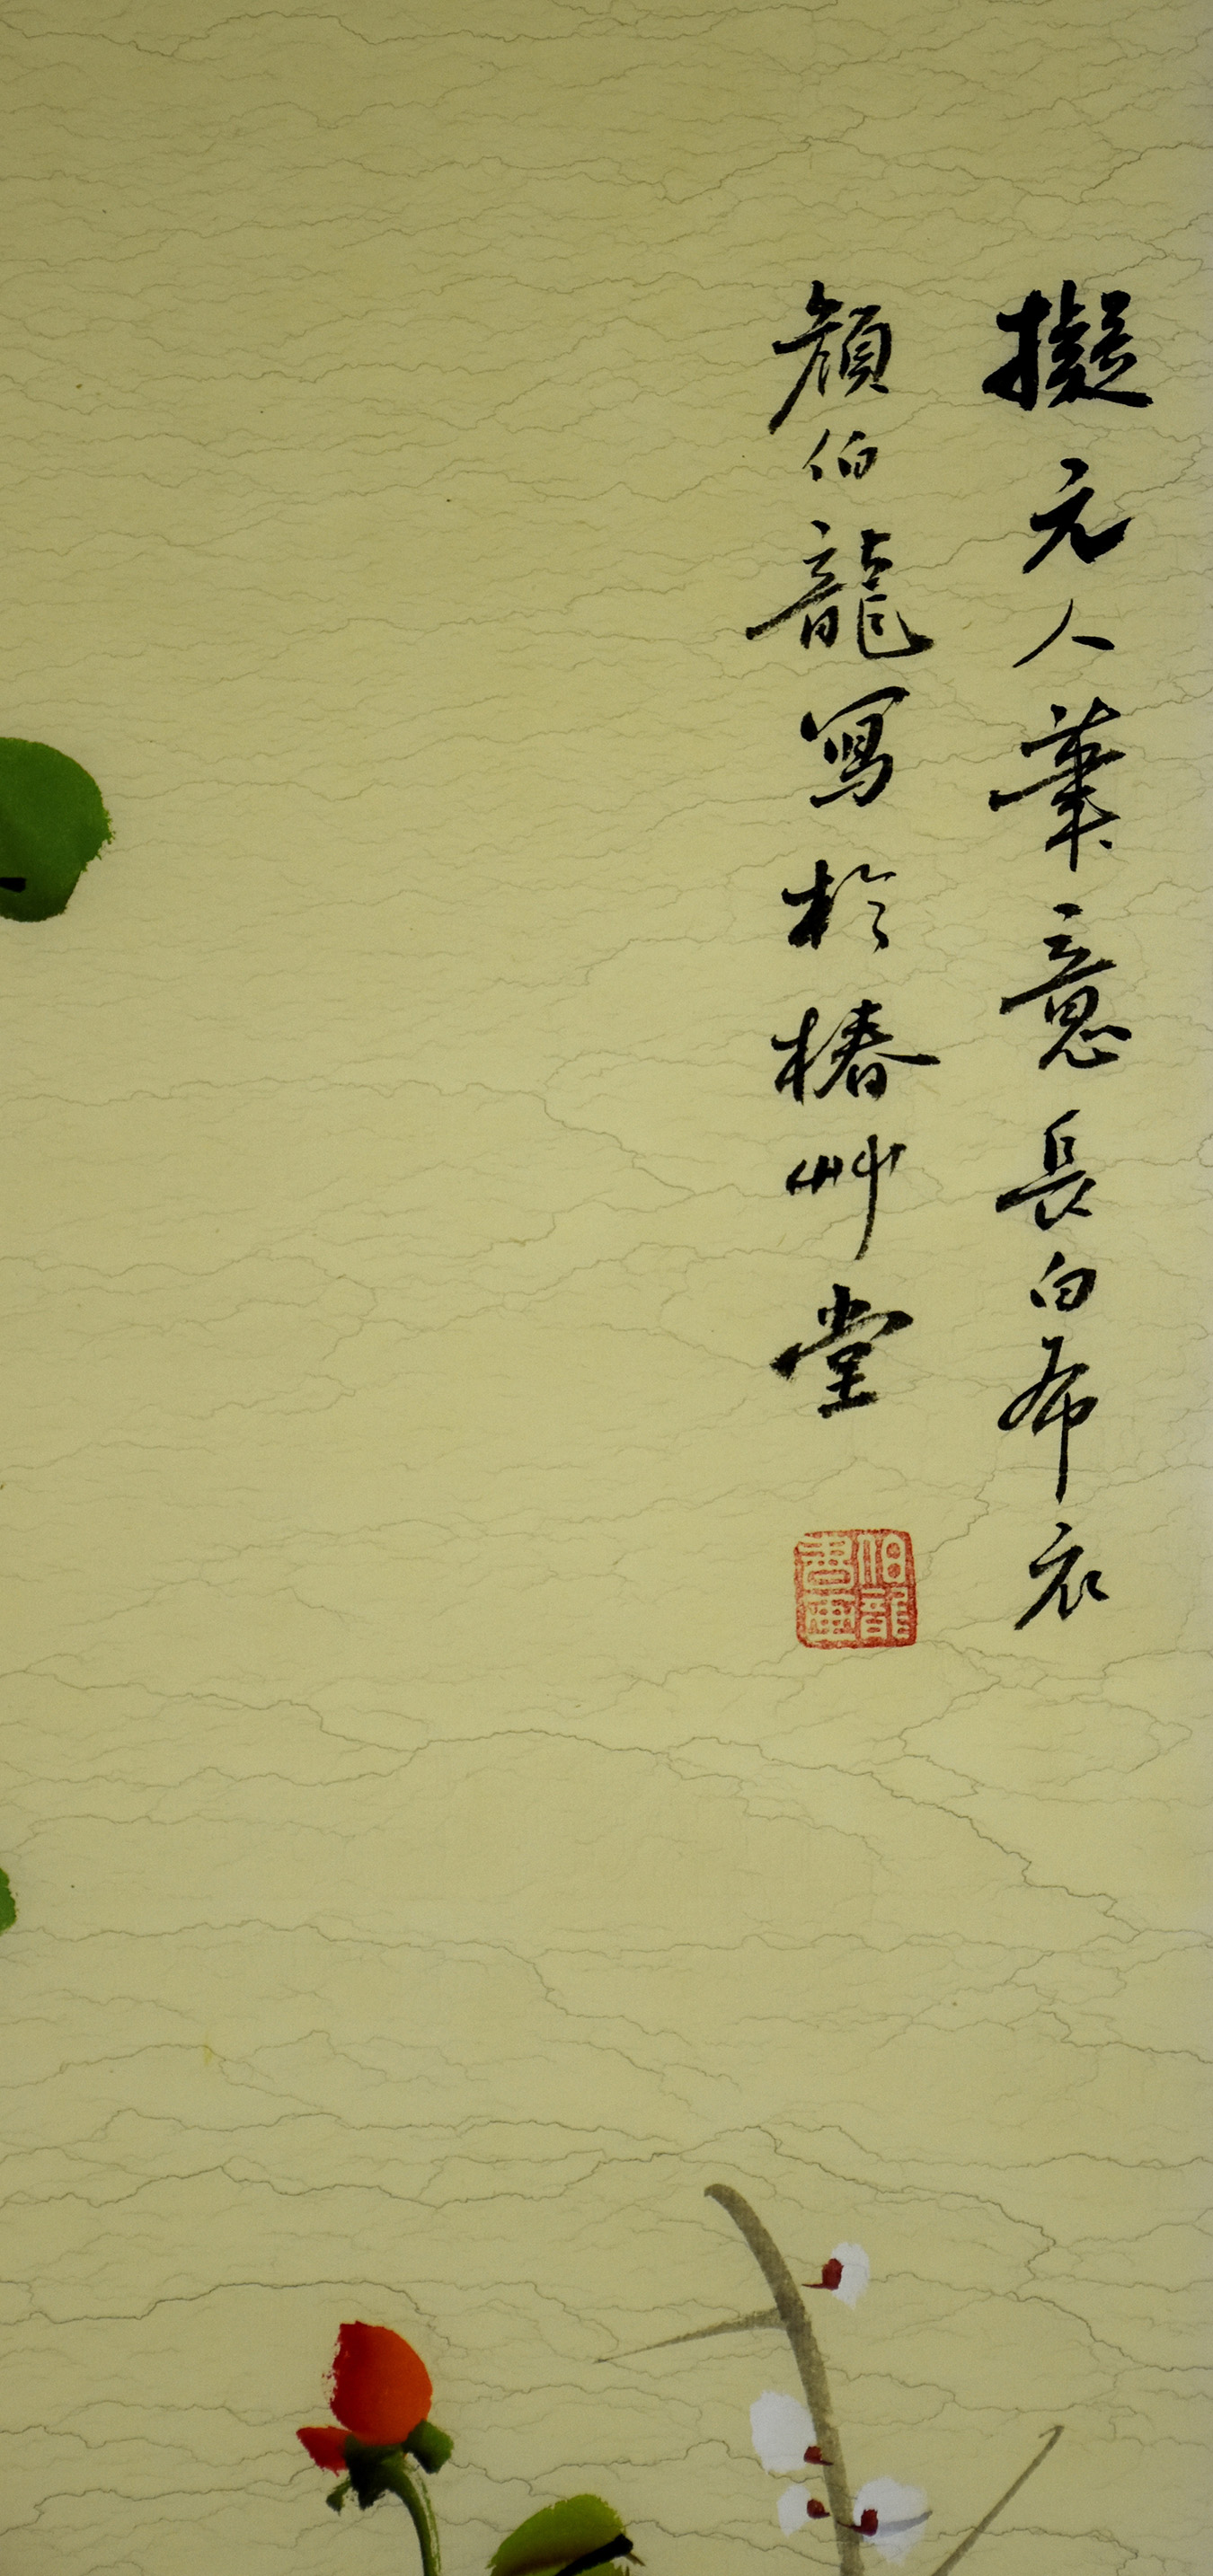 擬元人筆意長白布衣
顏伯龍寫於椿艸堂
伯龍書畫